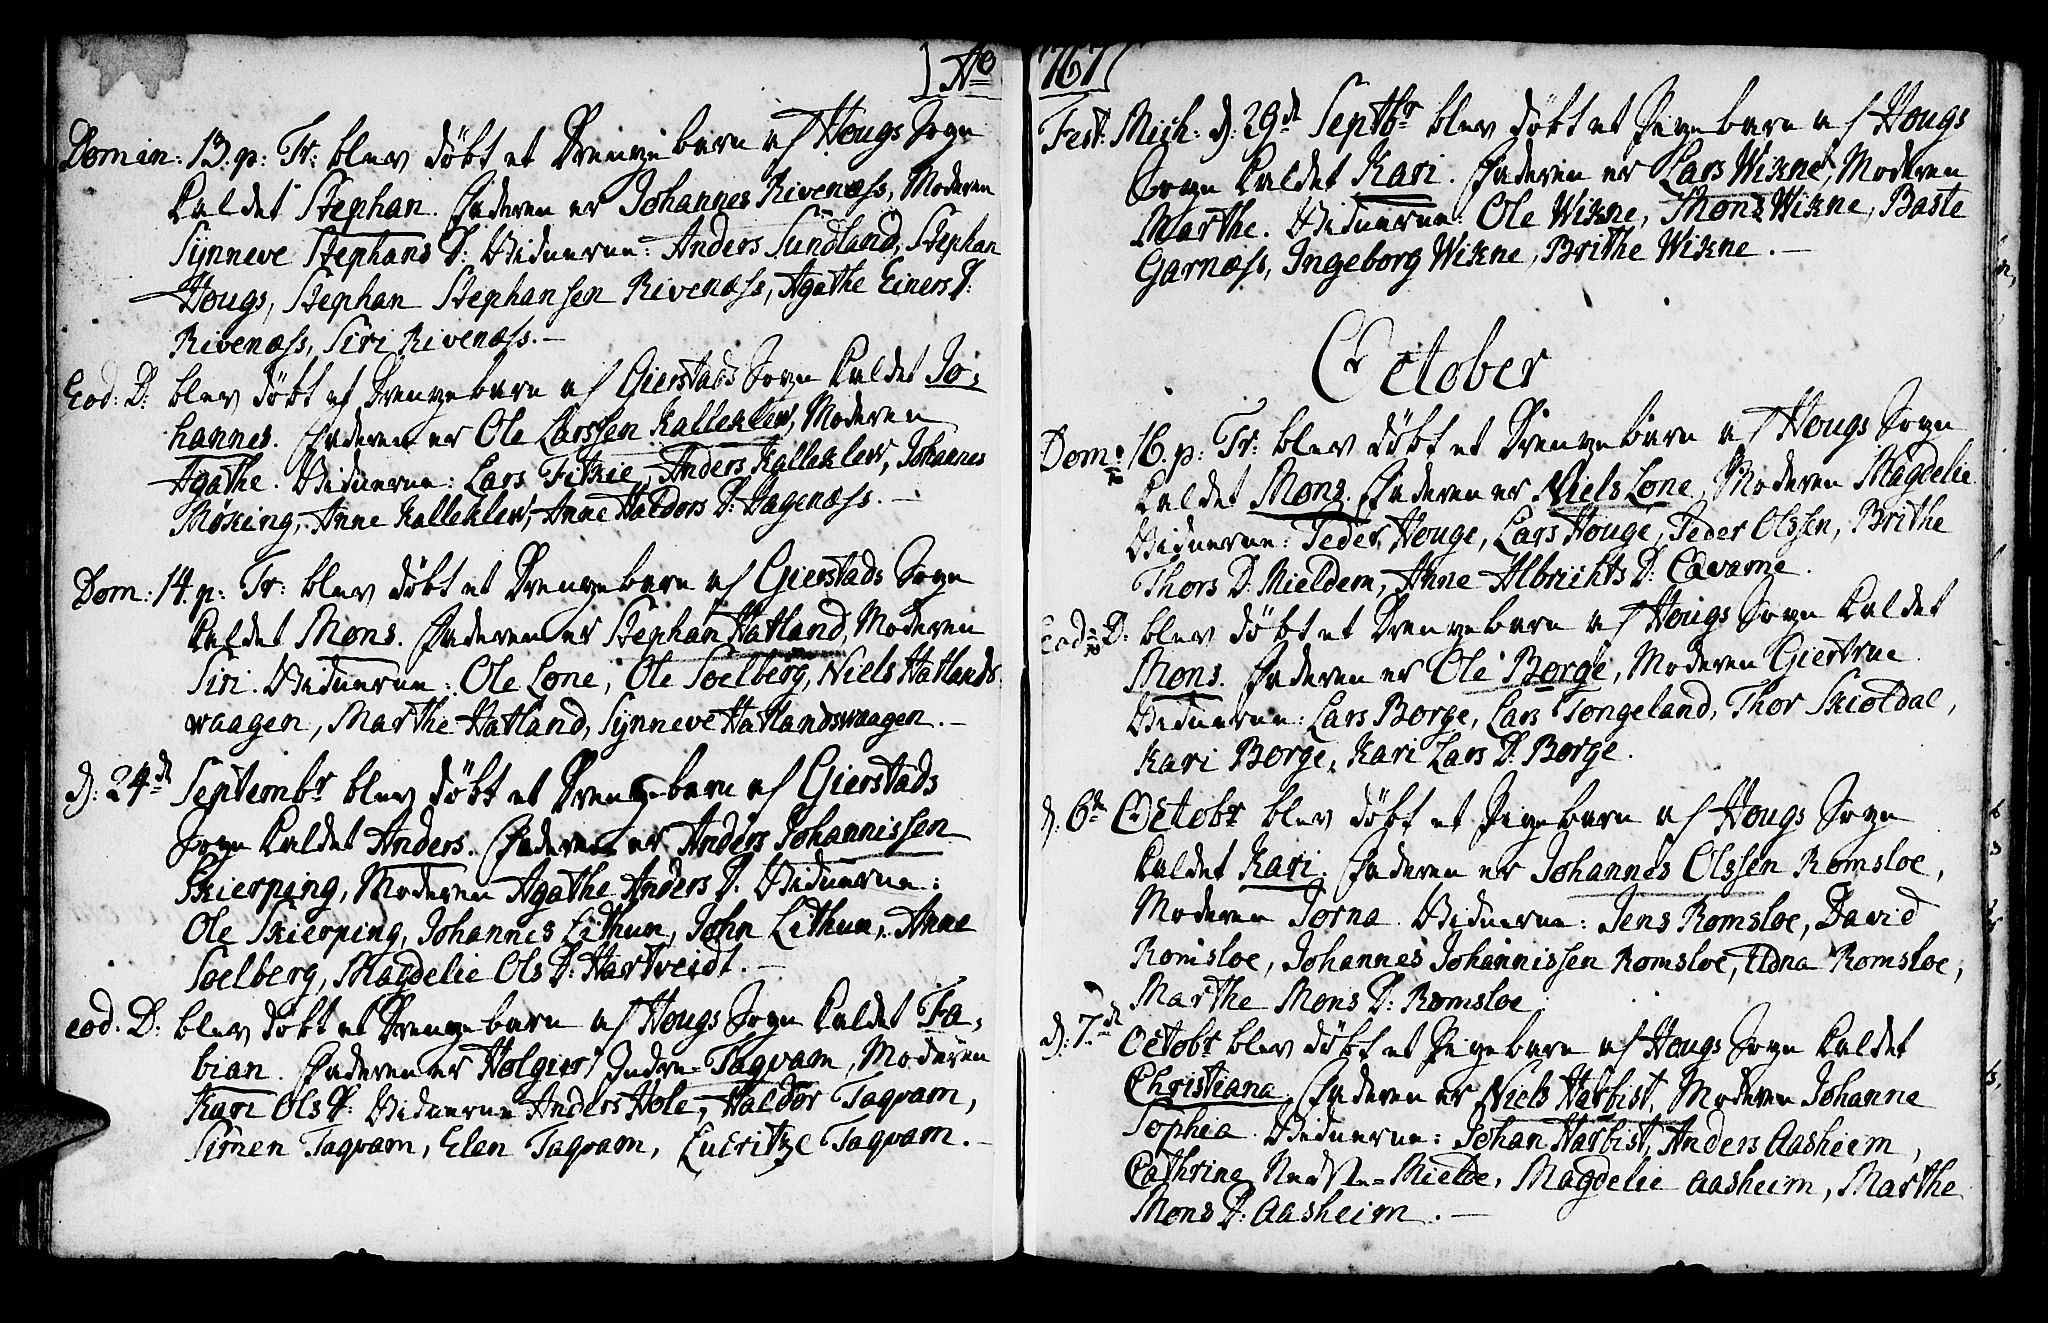 Ao
Domin: 13. p: Tr: blev døbt et Drengebarn af Hougs Sogn
kaldet Stephan. Faderen er Johannes Rivenæss, Moderen
Synneve Stephans D: Vidnerne: Anders Sundland, Stephan
Hougs, Stephan Stephansen Rivenæss, Agathe Einers D:
Rivenæss, Siri Rivenæss.
Eod: D: blev døbt et Drengebarn af Gierstads Sogn kaldet Jo-
hannes. Faderen er Ole Larssen Kalleklev, Moderen
Agathe. Vidnerne: Lars Fitkie, Anders Kalleklev, Johannes
Møking, Anne Kalleklev, Anne Haldors D: Hagenæss.
Dom: 14. p: Tr: blev døbt et Drengebarn af Gierstads Sogn
kaldet Mons. Faderen er Stephan Hatland, Moderen
Siri. Vidnerne: Ole Lone, Ole Soelberg, Niels Hatlands
waagen, Marthe Hatland, Synneve Hatlandswaagen.
d: 24de Septembr blev døbt et Drengebarn af Gierstads
Sogn kaldet Anders. Faderen er Anders Johannissen
Skierping, Moderen Agathe Anders D: Vidnerne:
Ole Skierping, Johannes Lithun, John Lithun, Anne
Soelberg, Magdelie Ols D: Hartveidt.
eod: D: blev døbt et Drengebarn af Hougs Sogn kaldet Fa-
bian. Faderen er Holgier Indre-Taqvam, Moderen
Kari Ols D: Vidnerne Anders Hole, Haldor Taqvam,
Simen Taqvam, Elen Taqvam, Taqvam.
767
Fest: Mich: d: 29de Septbr blev døbt et Pigebarn af Hougs
Sogn kaldet Kari. Faderen er Lars Wikne, Moderen
Marthe. Vidnerne: Ole Wikne, Mons Wikne, Baste
Garnæss, Ingeborg Wikne, Brithe Wikne.
October
Dom: 16. p: Tr: blev døbt et Drengebarn af Hougs Sogn
kaldet Mons. Faderen er Niels Lone, Moderen Magdelie
Vidnerne: Peder Houge, Lars Houge, Peder Olssen, Brithe
Thors D: Mieldem, Anne Albrichts D: Cavarne.
Eod: D: blev døbt et Drengebarn af Hougs Sogn kaldet
Mons. Faderen er Ole Borge, Moderen Giertrue.
Vidnerne: Lars Borge, Lars Tongeland, Thor Skiotdal,
Kari Borge, Kari Lars D: Borge.
d: 6te Octobr blev døbt et Pigebarn af Hougs Sogn
kaldet Kari. Faderen er Johannes Olssen Romsloe,
Moderen Jorna. Vidnerne: Jens Romsloe, David
Romsloe, Johannes Johannissen Romsloe, Romsloe,
Marthe Mons D: Romsloe.
d: 7de Octobr blev døbt et Pigebarn af Hougs Sogn kaldet
Christiana. Faderen er Niels Harbist, Moderen Johanne
Sophia. Vidnerne: Johan Harbist, Anders Aasheim,
Cathrina Nedste-Mielde, Magdelie Aasheim, Marthe
Mons D: Aasheim.